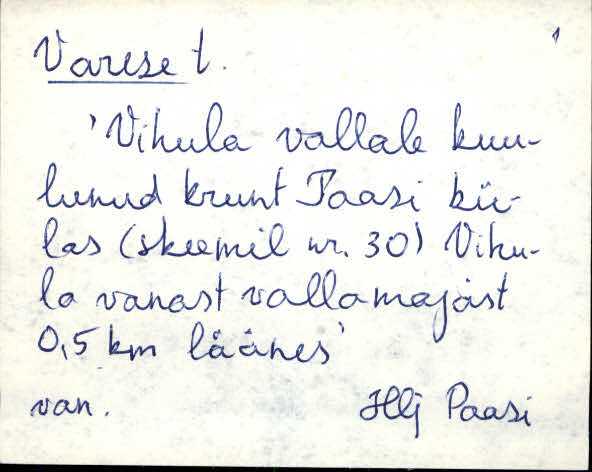 Varese t. 1
'Vihula vallale kuu-
lunud krunt Paasi kü-
las (skeemil nr. 30) Vihu-
la vanast vallamajast
0,5 km läänes'
van. Hlj Paasi